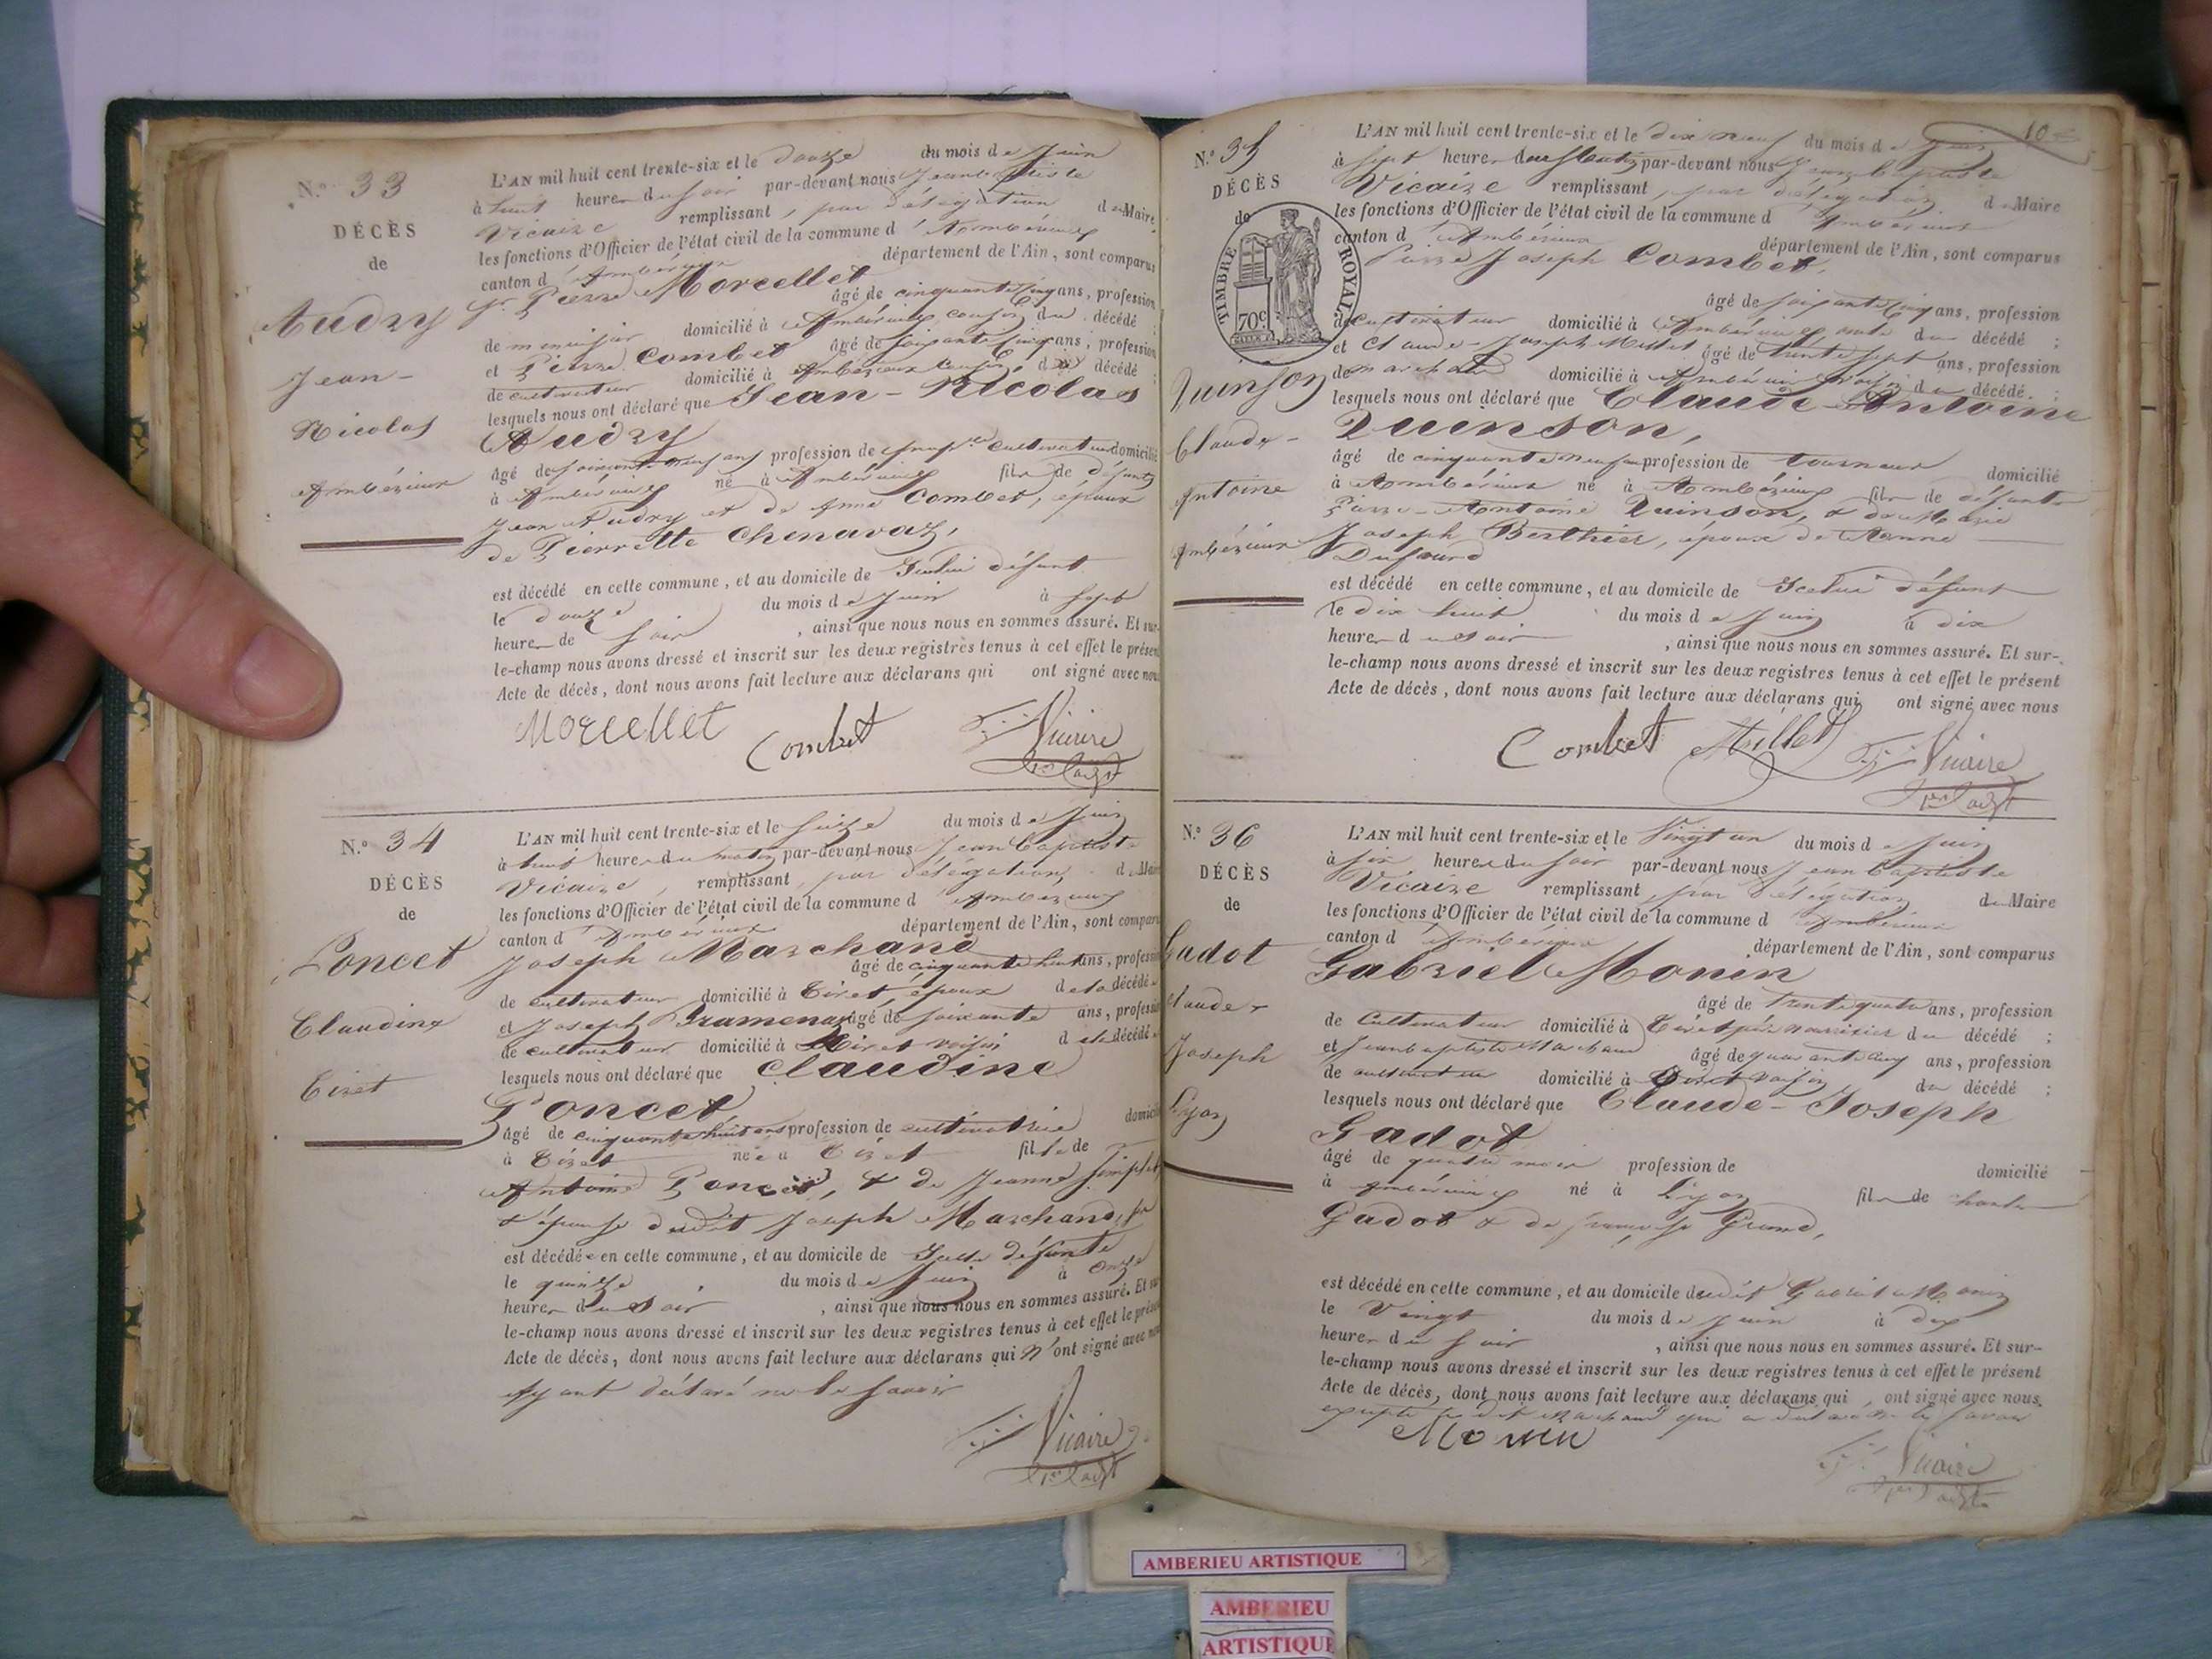 N.o 33
DÉCÈS
de
Audry
Jean-
Nicolas
Ambérieux
L'AN mil huit cent trente-six et le douze du mois de Juin
à huit heures du soir par-devant nous Jean Baptiste
Vicaire remplissant, par délégation du Maire,
les fonctions d'Officier de l'état civil de la commune d'Ambérieux
canton d'Ambérieux département de l'Ain, sont comparus
Pierre Morcellet âgé de cinquante cinq ans, profession
de menuisier domicilié à Ambérieux, cousin du décédé ;
et Pierre Combet âgé de soixante cinq ans, profession
de cultivateur domicilié à Ambérieux, cousin, du décédé ;
lesquels nous ont déclaré que Jean-Nicolas
Audry
âgé de soixante neuf ans profession de cultivateur domicilié
à Ambérieux né à Ambérieux fils de défunts
Jean Audry et de Anne Combet, époux
de Pierrette Chenavaz,
est décédé en cette commune, et au domicile de défunt
le douze du mois de Juin à sept
heures de soir, ainsi que nous nous en sommes assuré. Et sur-
le-champ nous avons dressé et inscrit sur les deux registres tenus à cet effet le présent
Acte de décès, dont nous avons fait lecture aux déclarans qui ont signé avec nous
Morcellet Combet Vicaire
N.o 34
DÉCÈS
de
Poncet
Claudine
Tiret
L'AN mil huit cent trente-six et le seize du mois de Juin
à huit heures du matin par-devant nous Jean Baptiste
Vicaire, remplissant, par délégation, du Maire
les fonctions d'Officier de l'état civil de la commune d'Ambérieux
canton d'Ambérieux département de l'Ain, sont comparus
Joseph Marchand âgé de cinquante huit ans, profession
de cultivateur domicilié à Tiret, époux de la décédée
et Joseph Gramenaz âgé de soixante ans, profession
de cultivateur domicilié à Tiret voisin de la décédée
lesquels nous ont déclaré que Claudine
Poncet
âgé de cinquante huit ans profession de cultivatrice domicilié
à Tiret née à Tiret fille de
Antoine Poncet, & de Jeanne
& épouse dudit Joseph Marchand
est décédée en cette commune, et au domicile de défunte
le quinze du mois de Juin à onze
heures du soir, ainsi que nous nous en sommes assuré. Et sur
le-champ nous avons dressé et inscrit sur les deux registres tenus à cet effet le présent
Acte de décès, dont nous avons fait lecture aux déclarans qui n'ont signé avec nous
ayant déclaré ne le savoir
Vicaire
10
N.o 35
DÉCÈS
de
TIMBRE ROYAL
70c
Quinson
Claude-
Antoine
Ambérieux
L'AN mil huit cent trente-six et le dix neuf du mois de Juin
à sept heures du matin par-devant nous Jean Baptiste
Vicaire remplissant, par délégation du Maire
les fonctions d'Officier de l'état civil de la commune d'Ambérieux
canton d'Ambérieux département de l'Ain, sont comparus
Pierre Joseph Combet,
âgé de soixante cinq ans, profession
de cultivateur domicilié à Ambérieux du décédé ;
et Claude-Joseph Millet âgé de trente sept ans, profession
de marchand domicilié à Ambérieux voisin du décédé ;
lesquels nous ont déclaré que Claude-Antoine
Quinson,
âgé de cinquante neuf ans profession de tourneur domicilié
à Ambérieux né à Ambérieux fils de défunts
Pierre-Antoine Quinson, & de Marie
Joseph Berthier, époux de Anne
Dufourd
est décédé en cette commune, et au domicile de défunt
le dix huit du mois de Juin à dix
heures du soir, ainsi que nous nous en sommes assuré. Et sur-
le-champ nous avons dressé et inscrit sur les deux registres tenus à cet effet le présent
Acte de décès, dont nous avons fait lecture aux déclarans qui ont signé avec nous
Combet Millet Vicaire
N.o 36
DÉCÈS
de
Gadot
Claude-
Joseph
Lyon
L'AN mil huit cent trente-six et le vingt un du mois de Juin
à six heures du soir par-devant nous Jean Baptiste
Vicaire remplissant, par délégation du Maire
les fonctions d'Officier de l'état civil de la commune d'Ambérieux
canton d'Ambérieux département de l'Ain, sont comparus
Gabriel Monin
âgé de trente quatre ans, profession
de cultivateur domicilié à Tiret père nourricier du décédé ;
et Jean baptiste Marchand âgé de quarante cinq ans, profession
de cultivateur domicilié à Tiret voisin du décédé ;
lesquels nous ont déclaré que Claude-Joseph
Gadot
âgé de quatre mois profession de domicilié
à Ambérieux né à Lyon fils de
Gadot & de
est décédé en cette commune, et au domicile dudit Gabriel Monin
le vingt du mois de Juin à dix
heures du soir, ainsi que nous nous en sommes assuré. Et sur-
le-champ nous avons dressé et inscrit sur les deux registres tenus à cet effet le présent
Acte de décès, dont nous avons fait lecture aux déclarans qui ont signé avec nous.
excepté le dit Marchand qui a déclaré ne le savoir
Monin
Vicaire
AMBERIEU ARTISTIQUE
AMBERIEU
ARTISTIQUE